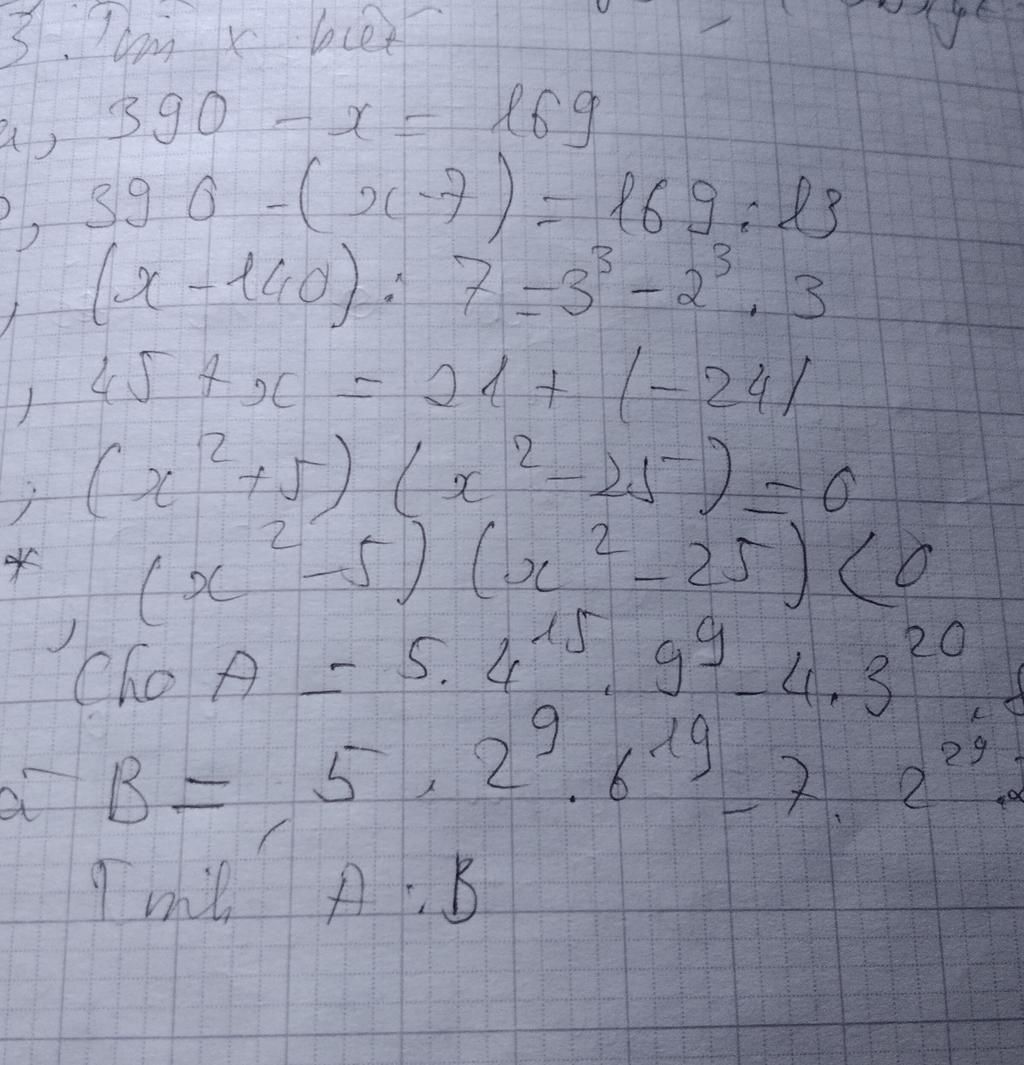 3. Tìm x biết
a, 390 - x = 169
, 390 - (x-7) = 169 : 13
, (x - 140) : 7 = 3³ - 2³ . 3
, 45 + x = 21 + (-24)
, (x² + 5) (x² - 25) = 0
* (x² - 5) (x² - 25) < 0
, Cho A = 5. 4¹⁵ . 9⁹ - 4. 3²⁰ .
B = 5 . 2⁹ . 6¹⁹ - 7. 2²⁹ .
Tính A : B